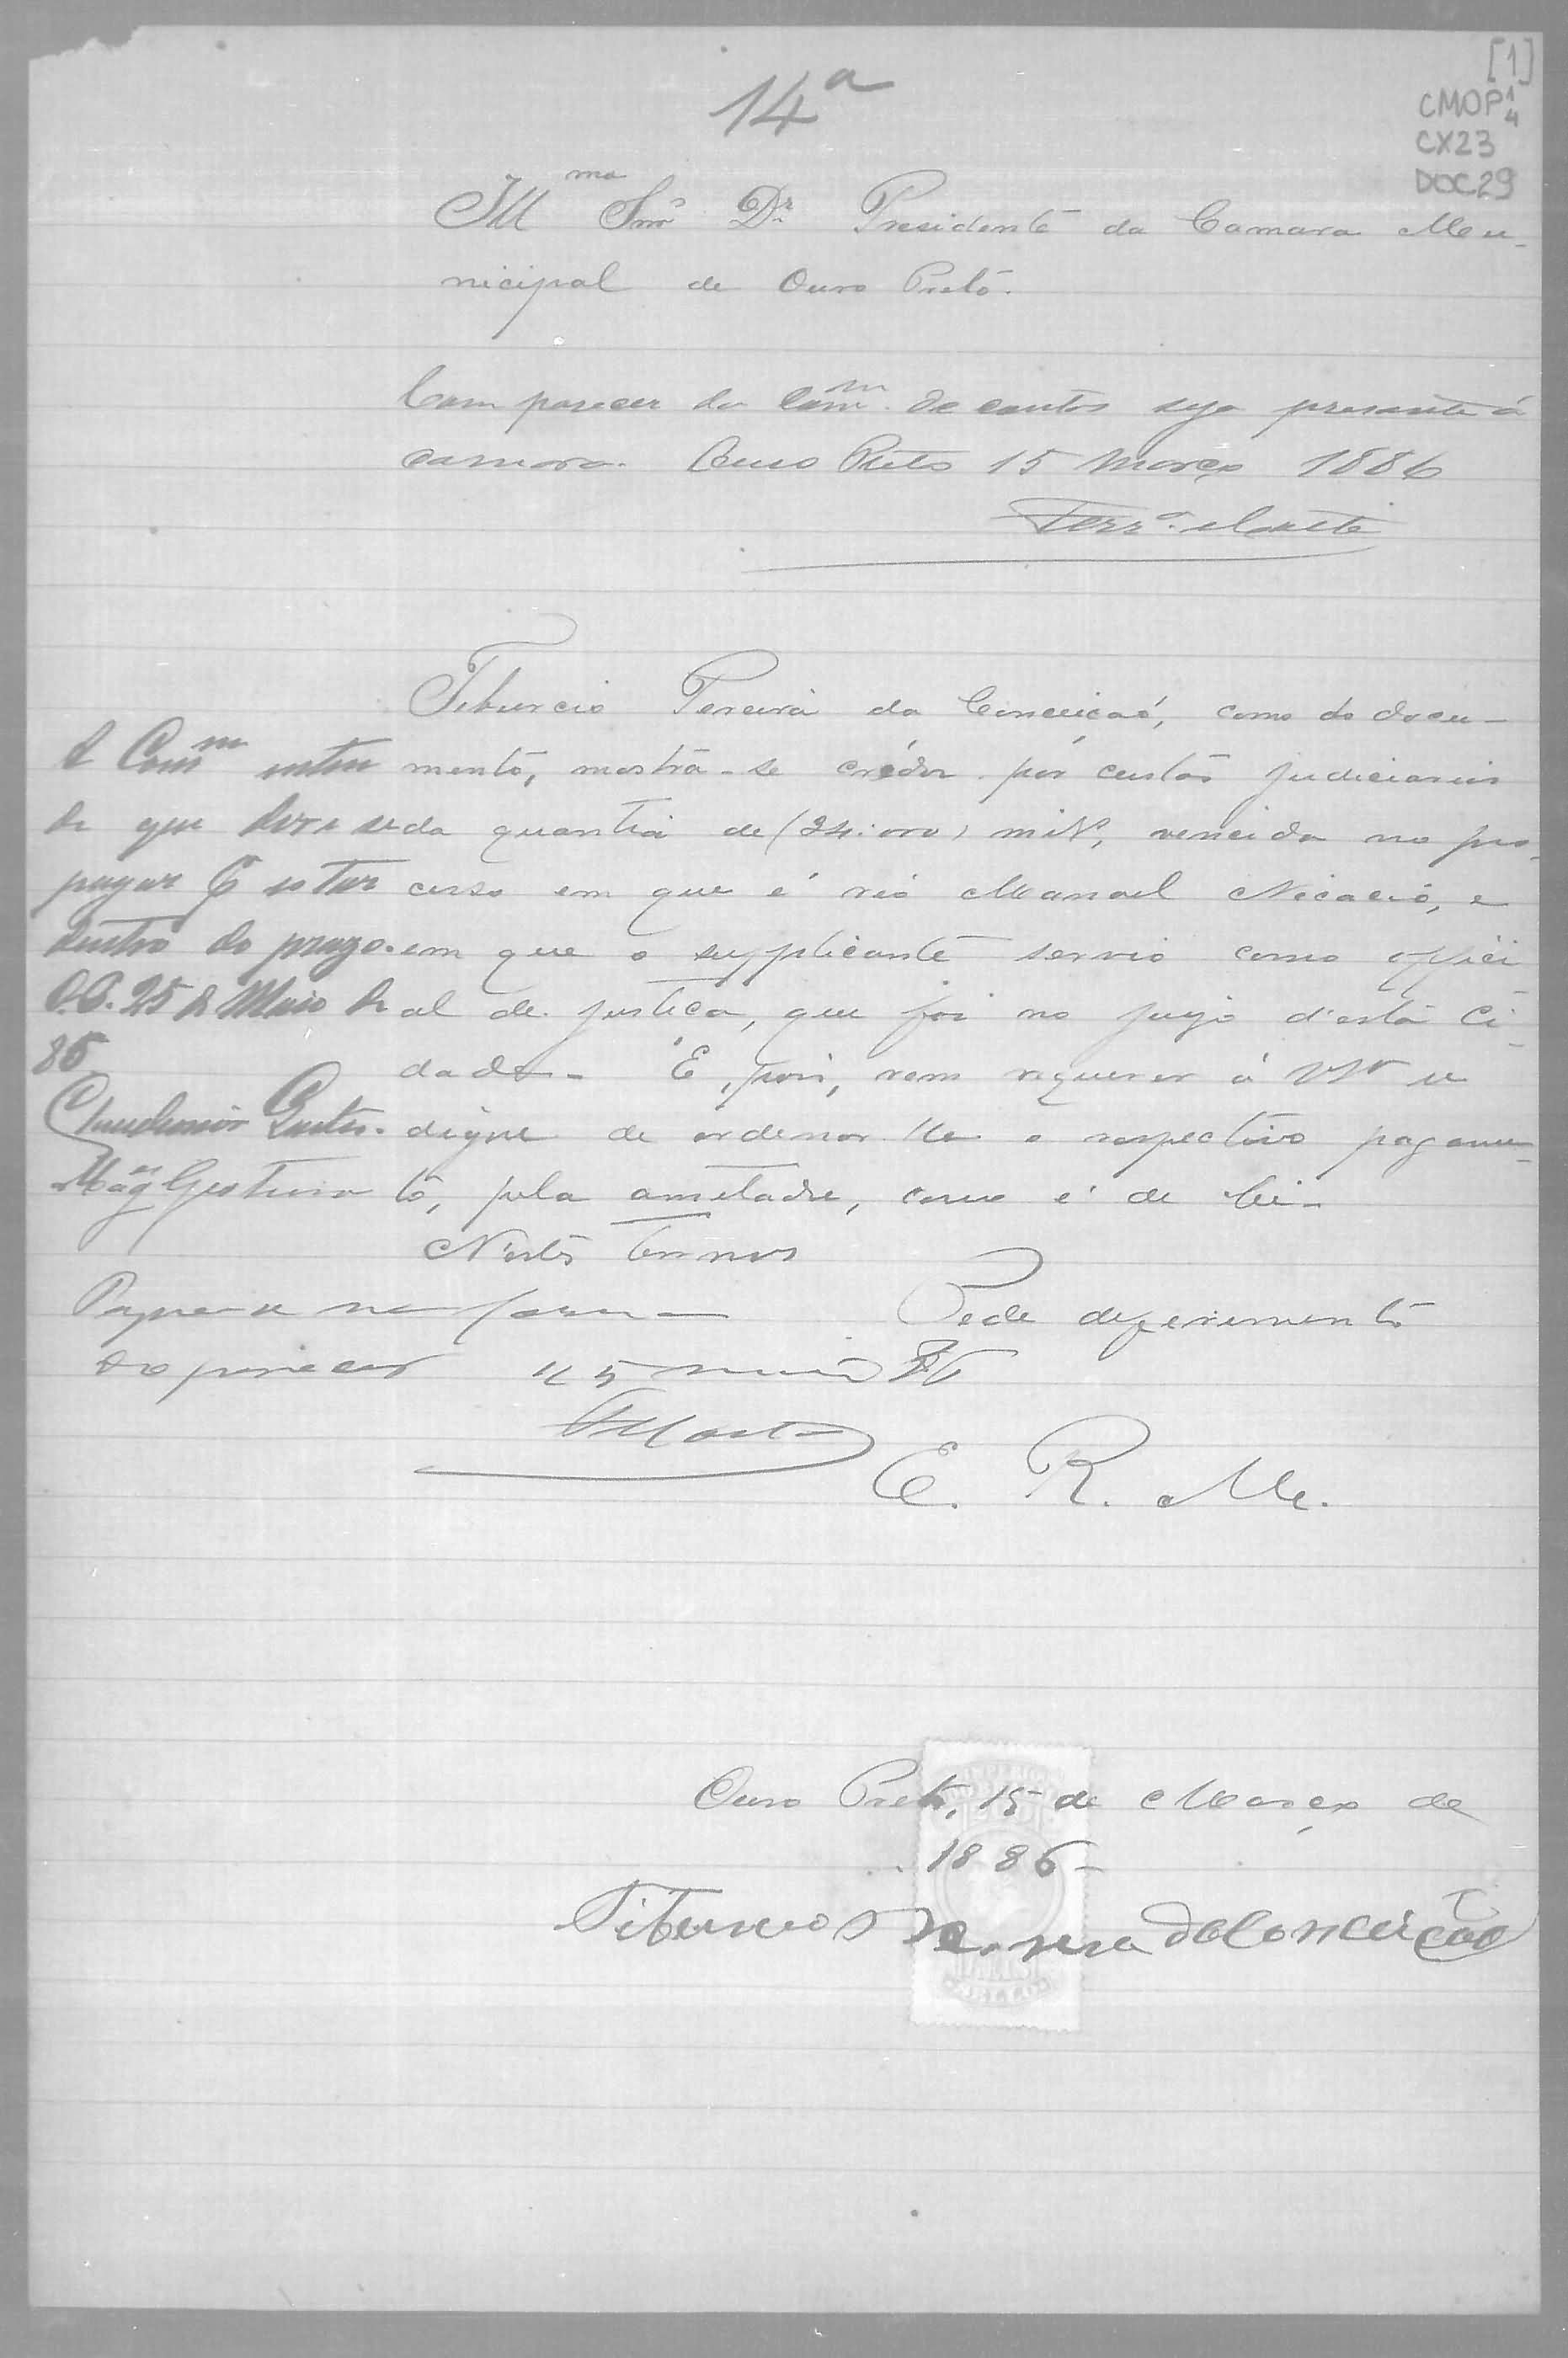 14ª
[1]
CMOP 1/4
CX23
DOC29
Illmo Snr Dr Presidente da Camara Mu-
nicipal de Ouro Preto.
Com parecer da Comm de contas seja presente á
camara. Ouro Preto 15 Março 1886
Ferrª. Costa
Tiburcio Pereira da Conceição, como do docu-
mento, mostra-se crédor por custas judiciarias
da quantia de (24:000) mil rs, vencida no pro-
cesso em que é réo Manoel Nicacio, e
em que o supplicante servio como offici
al de justiça, que foi no juizo d'esta Ci-
dade - E, pois, vem requerer á VSª se
digne de ordenar lhe o respectivo pagamen-
to, pela ametade, como é de lei -
N'estes termos
Pede deferimento
E. R. Me.
A Comm enten
de que deve se
pagar por estar
dentro do prazo.
O.P. 25 de Maio de
86
Pague-se na forma
do parecer 25 maio 86
Ouro Preto, 15 de Março de
1886-
Tiburcio Pereira da Conceição
SELLO